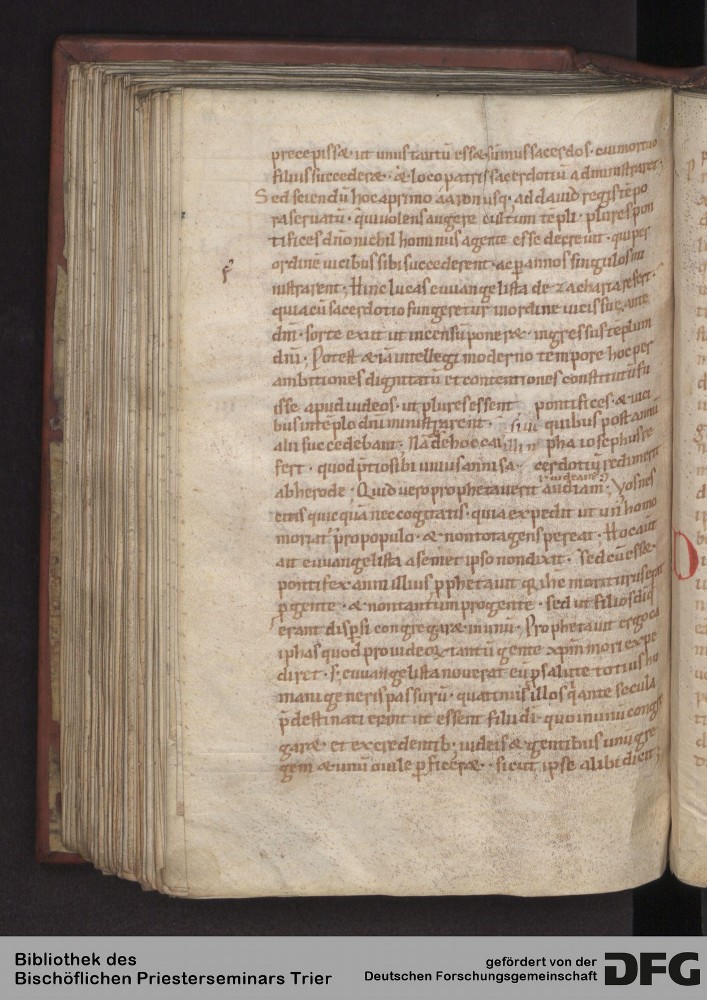 precepissæ · ut unus tantū essæ sūmus sacerdos · cui mortuo
filius succederæ · & loco patris sacerdotiū administraret;
Sed sciendū hoc a primo aaron usq; ad dauid regis tēpo
ra seruatū · qui uolens augere cultum tēpli · plures pon
tifices dn̄o nichil hominus agente esse decreuit · qui per
ordinē uicibus sibi succederent · ac p annos singulos mi
nistrarent; Hinc lucas euuangelista de zacharia refert ·
quia cū sacerdotio fungeretur in ordine uicis suę ante
dm̄ · sorte exiit ut incensū poneræ · ingressus tēplum
dn̄i; Potest & iā intellegi moderno tempore hoc per
ambitiones dignitatū et contentiones constitutū fu
isse apud iudeos · ut plures essent pontifices · & uici
bus in tēplo dn̄i ministrarent · quibus post annū
alii succedebant · Nā de hoc cai pha iosephus re
fert · quod p̄tio sibi unius anni sa cerdotiū redimerit
ab herode; Quid uero prophetauerit audiam; Vos nes
citis quicquā nec cogitatis · quia expedit ut un' homo
moriat' pro populo · & non tota gens pereat; Hoc aut
ait euuangelista a semet ipso non dixit · sed cū esset
pontifex anni illius p̄phetauit q ihc moriturus erat
p gente · & non tantum pro gente · sed ut filios di q
erant dispersi congregaræ in unū; Prophetauit ergo ca
iphas quod pro iudeorū tantū gente xp̄m mori expe
diret · s; euuangelista nouerat eū p salute totius hu
mani generis passurū · quatinus illos q ante secula
p̄destinati erant ut essent filii di · quo in unū congre
garæ · et ex credentib; iudeis & gentibus unū gre
gem & unū ouile pficeræ · sicut ipse alibi dicit;
Bibliothek des
Bischöflichen Priesterseminars Trier
gefördert von der
Deutschen Forschungsgemeinschaft
DFG